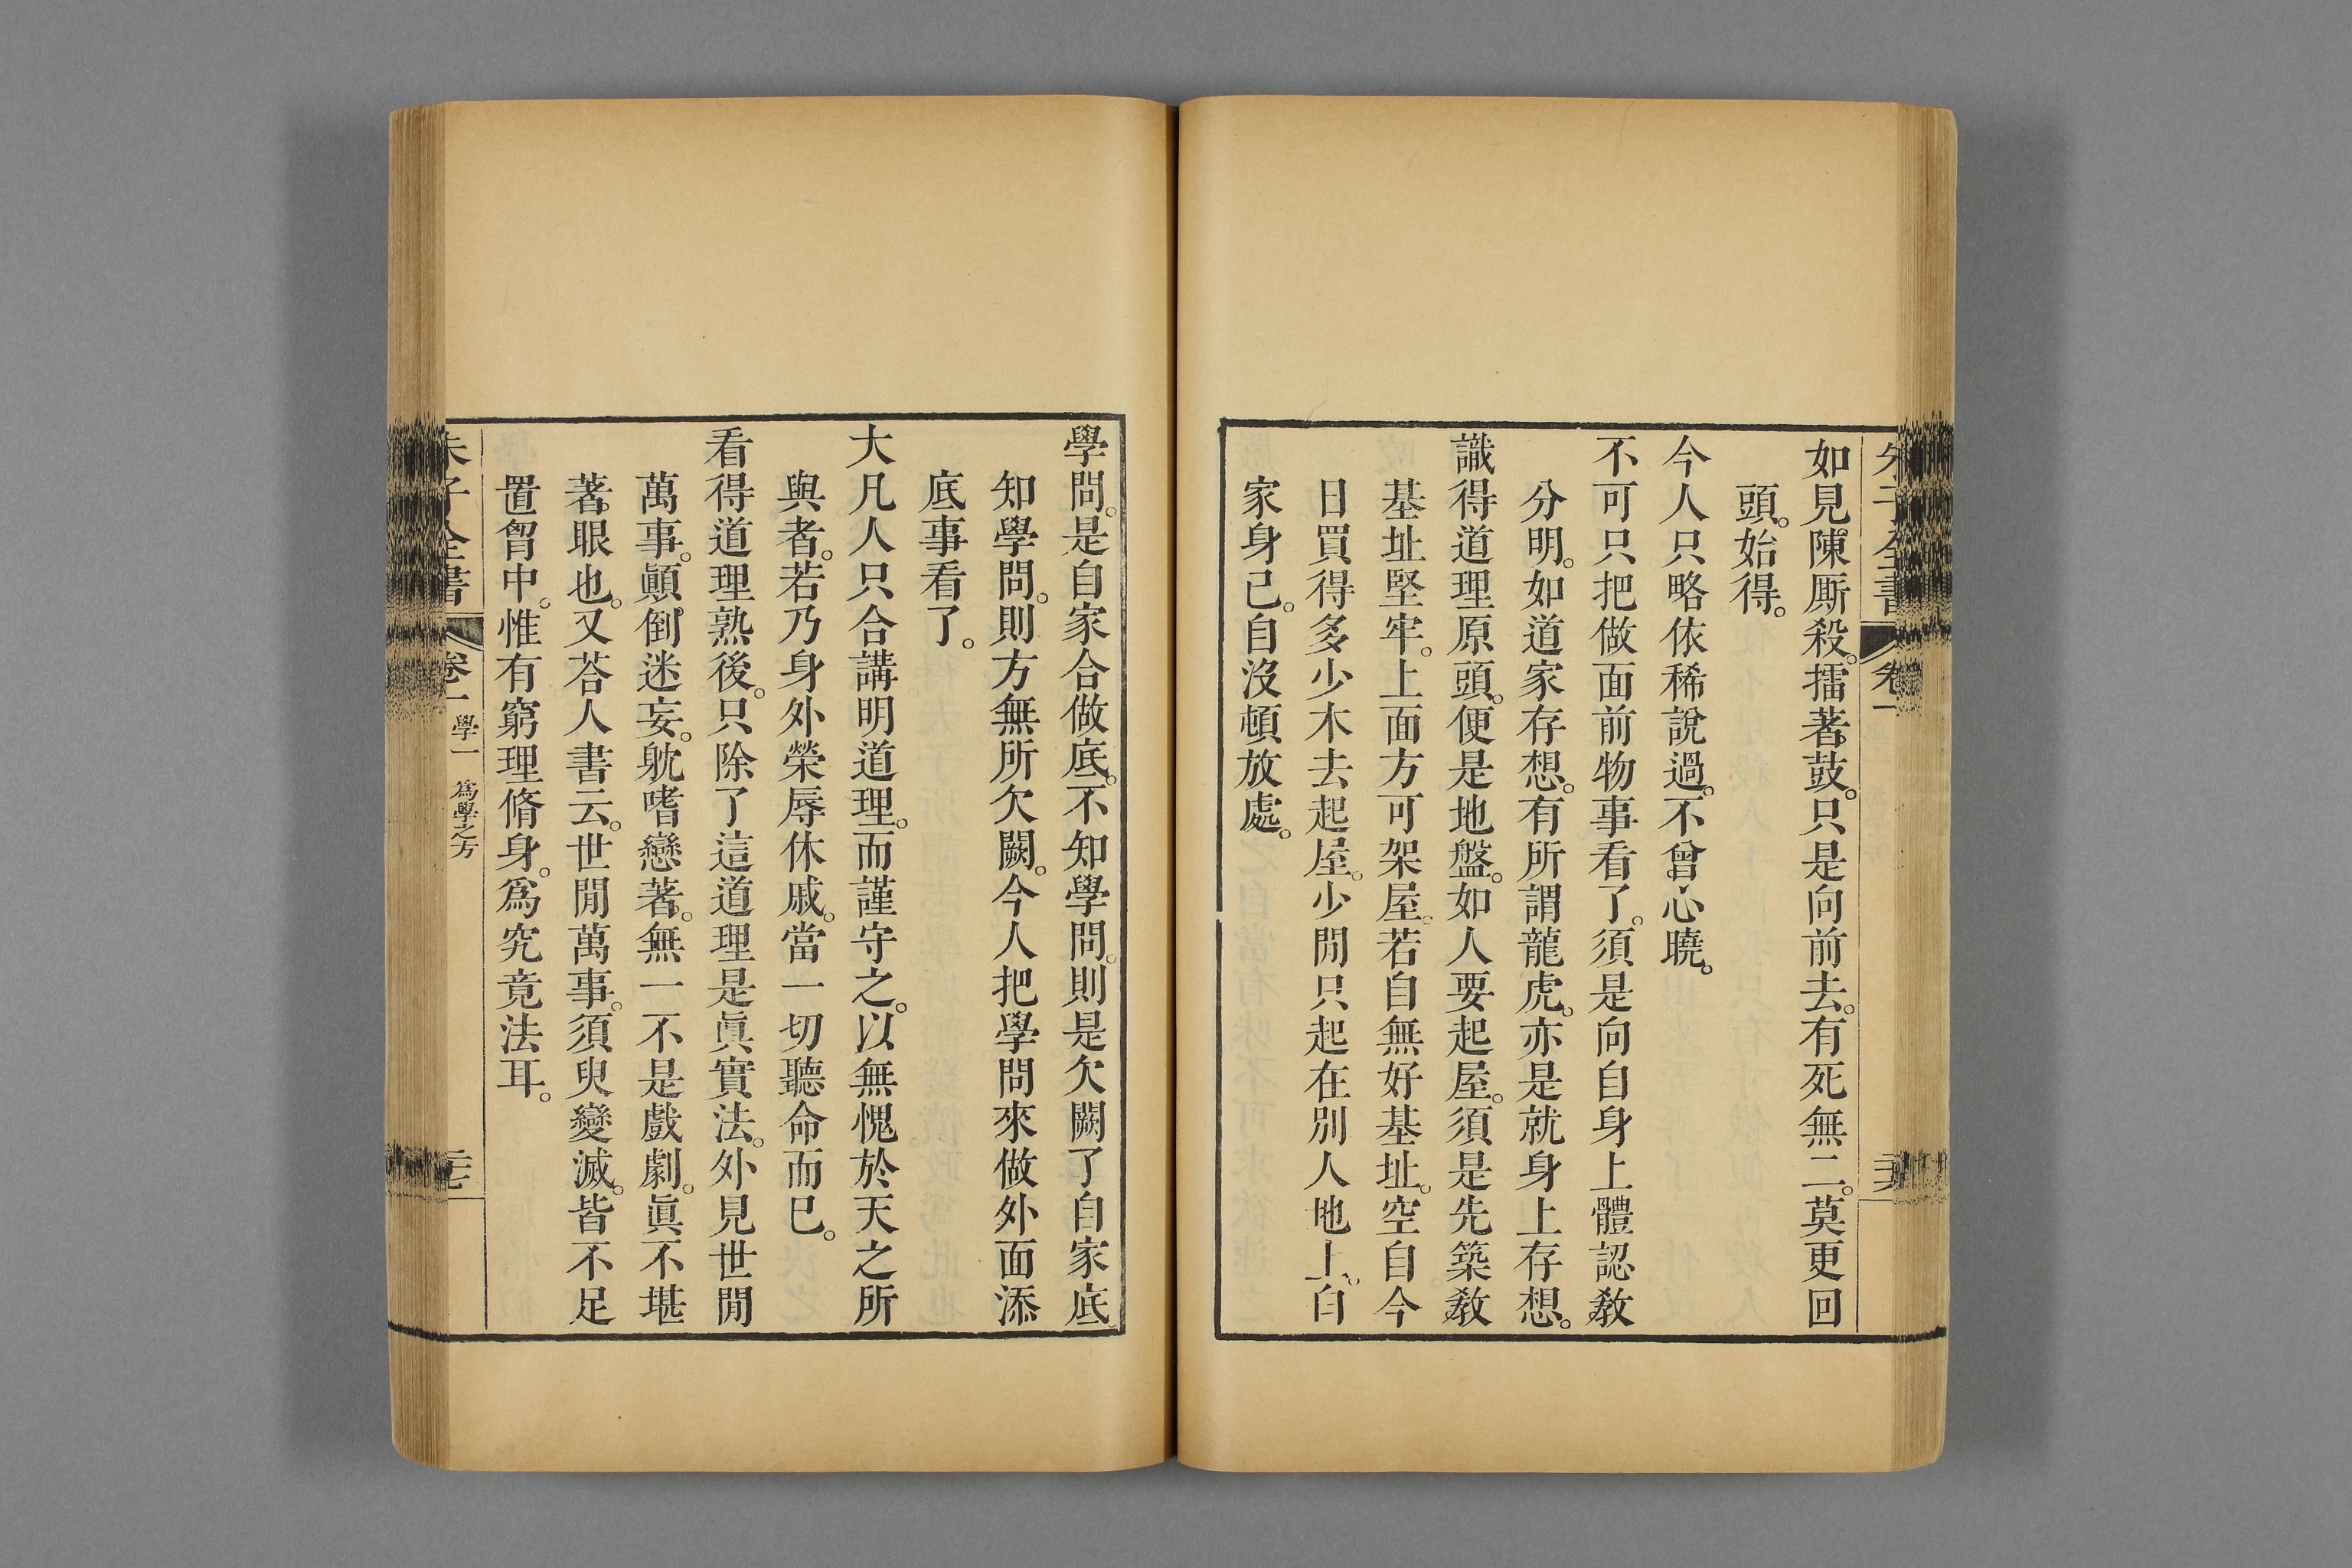 朱子全書 卷一
如見陳厮殺。擂著鼓。只是向前去。有死無二。莫更回
頭。始得。
今人只略依稀說過。不曾心曉。
不可只把做面前物事看了。須是向自身上體認敎
分明。如道家存想。有所謂龍虎。亦是就身上存想。
識得道理原頭。便是地盤。如人要起屋。須是先築敎
基址堅牢。上面方可架屋。若自無好基址。空自今
日買得多少木去起屋。少閒只起在別人地上。自
家身己。自沒頓放處。
學問。是自家合做底。不知學問。則是欠闕了自家底。
知學問。則方無所欠闕。今人把學問來做外面添
底事看了。
大凡人只合講明道理。而謹守之。以無愧於天之所
與者。若乃身外榮辱休戚。當一切聽命而已。
看得道理熟後。只除了這道理是眞實法。外見世閒
萬事。顚倒迷妄。躭嗜戀著。無一不是戲劇。眞不堪
著眼也。又荅人書云。世閒萬事。須臾變滅。皆不足
置胷中。惟有窮理脩身。爲究竟法耳。
朱子全書 卷一 學一 爲學之方